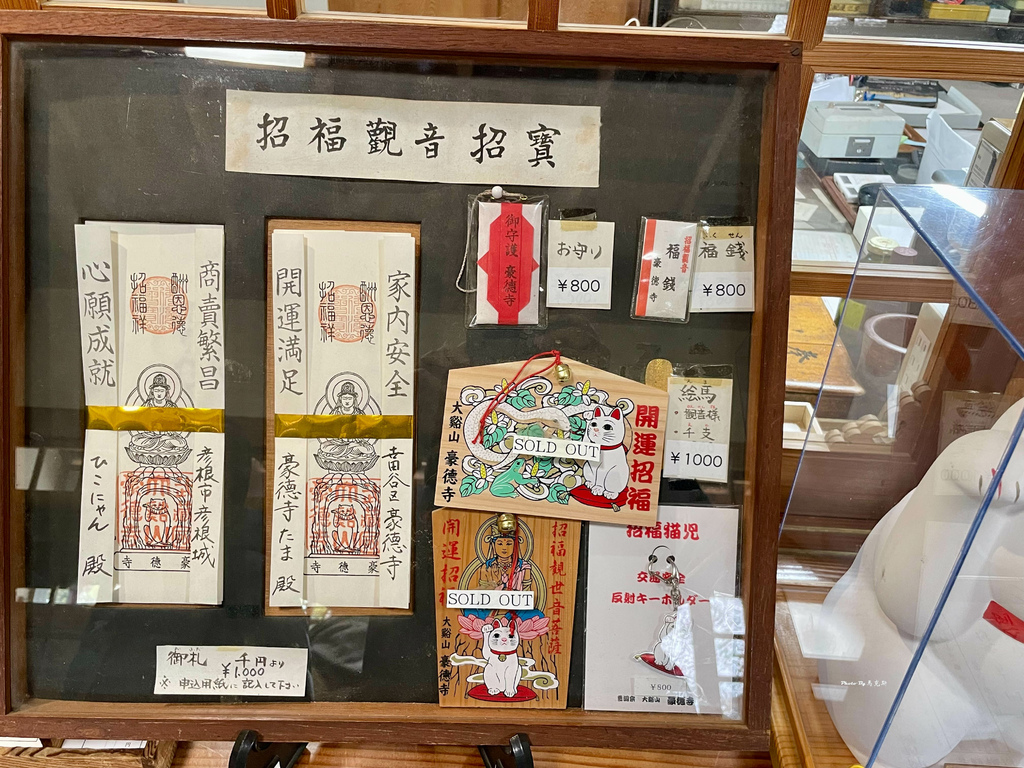 招福觀音招寳
商賣繁昌
心願成就
酬恩德
招福祥
彦根市彦根城
ひこにゃん 殿
豪徳寺
家内安全
開運満足
酬恩德
招福祥
世田谷区 豪徳寺
豪徳寺たま 殿
豪徳寺
御札 千円より
¥1,000
※ 申込用紙に記入して下さい
御守護 豪徳寺
お守り
¥800
招福観音
福銭
豪徳寺
ふくせん
福銭
¥800
開運招福
大谿山 豪徳寺
SOLD OUT
絵馬
・観音様
・干支
¥1000
招福観世音菩薩
開運招
大谿山 豪徳寺
SOLD OUT
招福猫児
交通安全
反射キーホルダー
¥800
世田谷 大谿山 豪徳寺